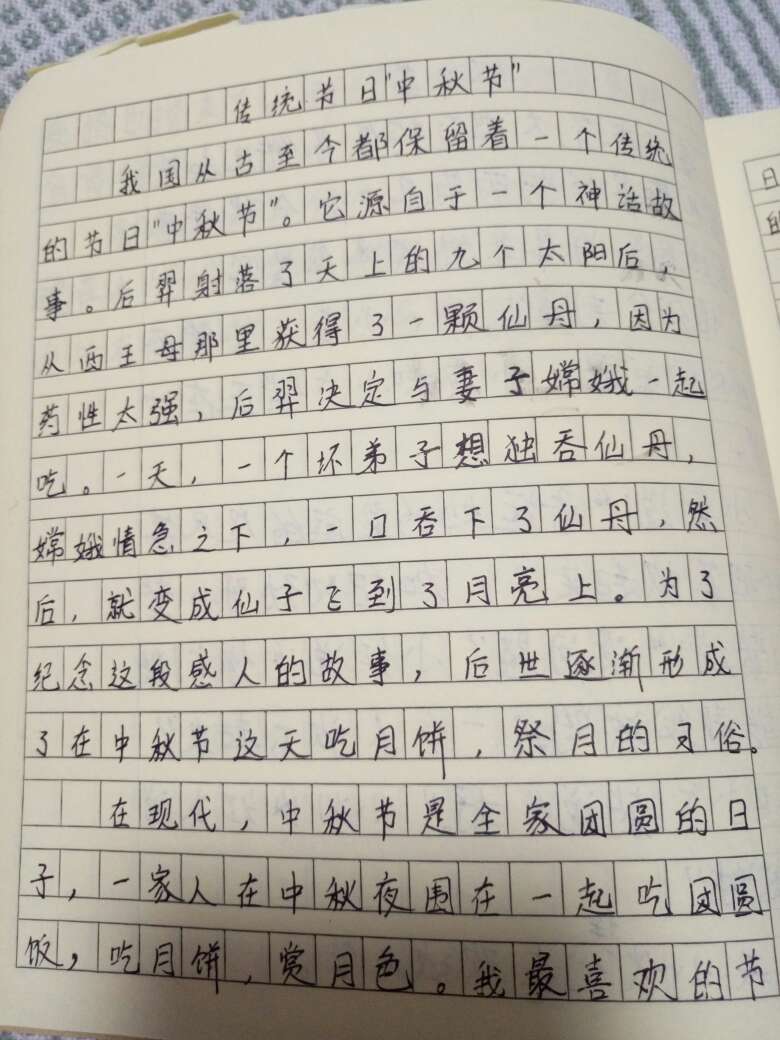 传统节日"中秋节"
我国从古至今都保留着一个传统
的节日"中秋节"。它源自于一个神话故
事。后羿射落了天上的九个太阳后，
从西王母那里获得了一颗仙丹，因为
药性太强，后羿决定与妻子嫦娥一起
吃。一天，一个坏弟子想独吞仙丹，
嫦娥情急之下，一口吞下了仙丹，然
后，就变成仙子飞到了月亮上。为了
纪念这段感人的故事，后世逐渐形成
了在中秋节这天吃月饼，祭月的习俗。
在现代，中秋节是全家团圆的日
子，一家人在中秋夜围在一起吃团圆
饭，吃月饼，赏月色。我最喜欢的节
日
的